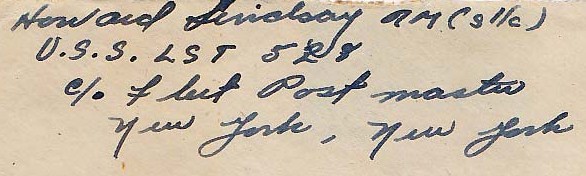 Howard Lindsay RM (S1/c)
U.S.S. LST 528
c/o Fleet Post master
New York, New York